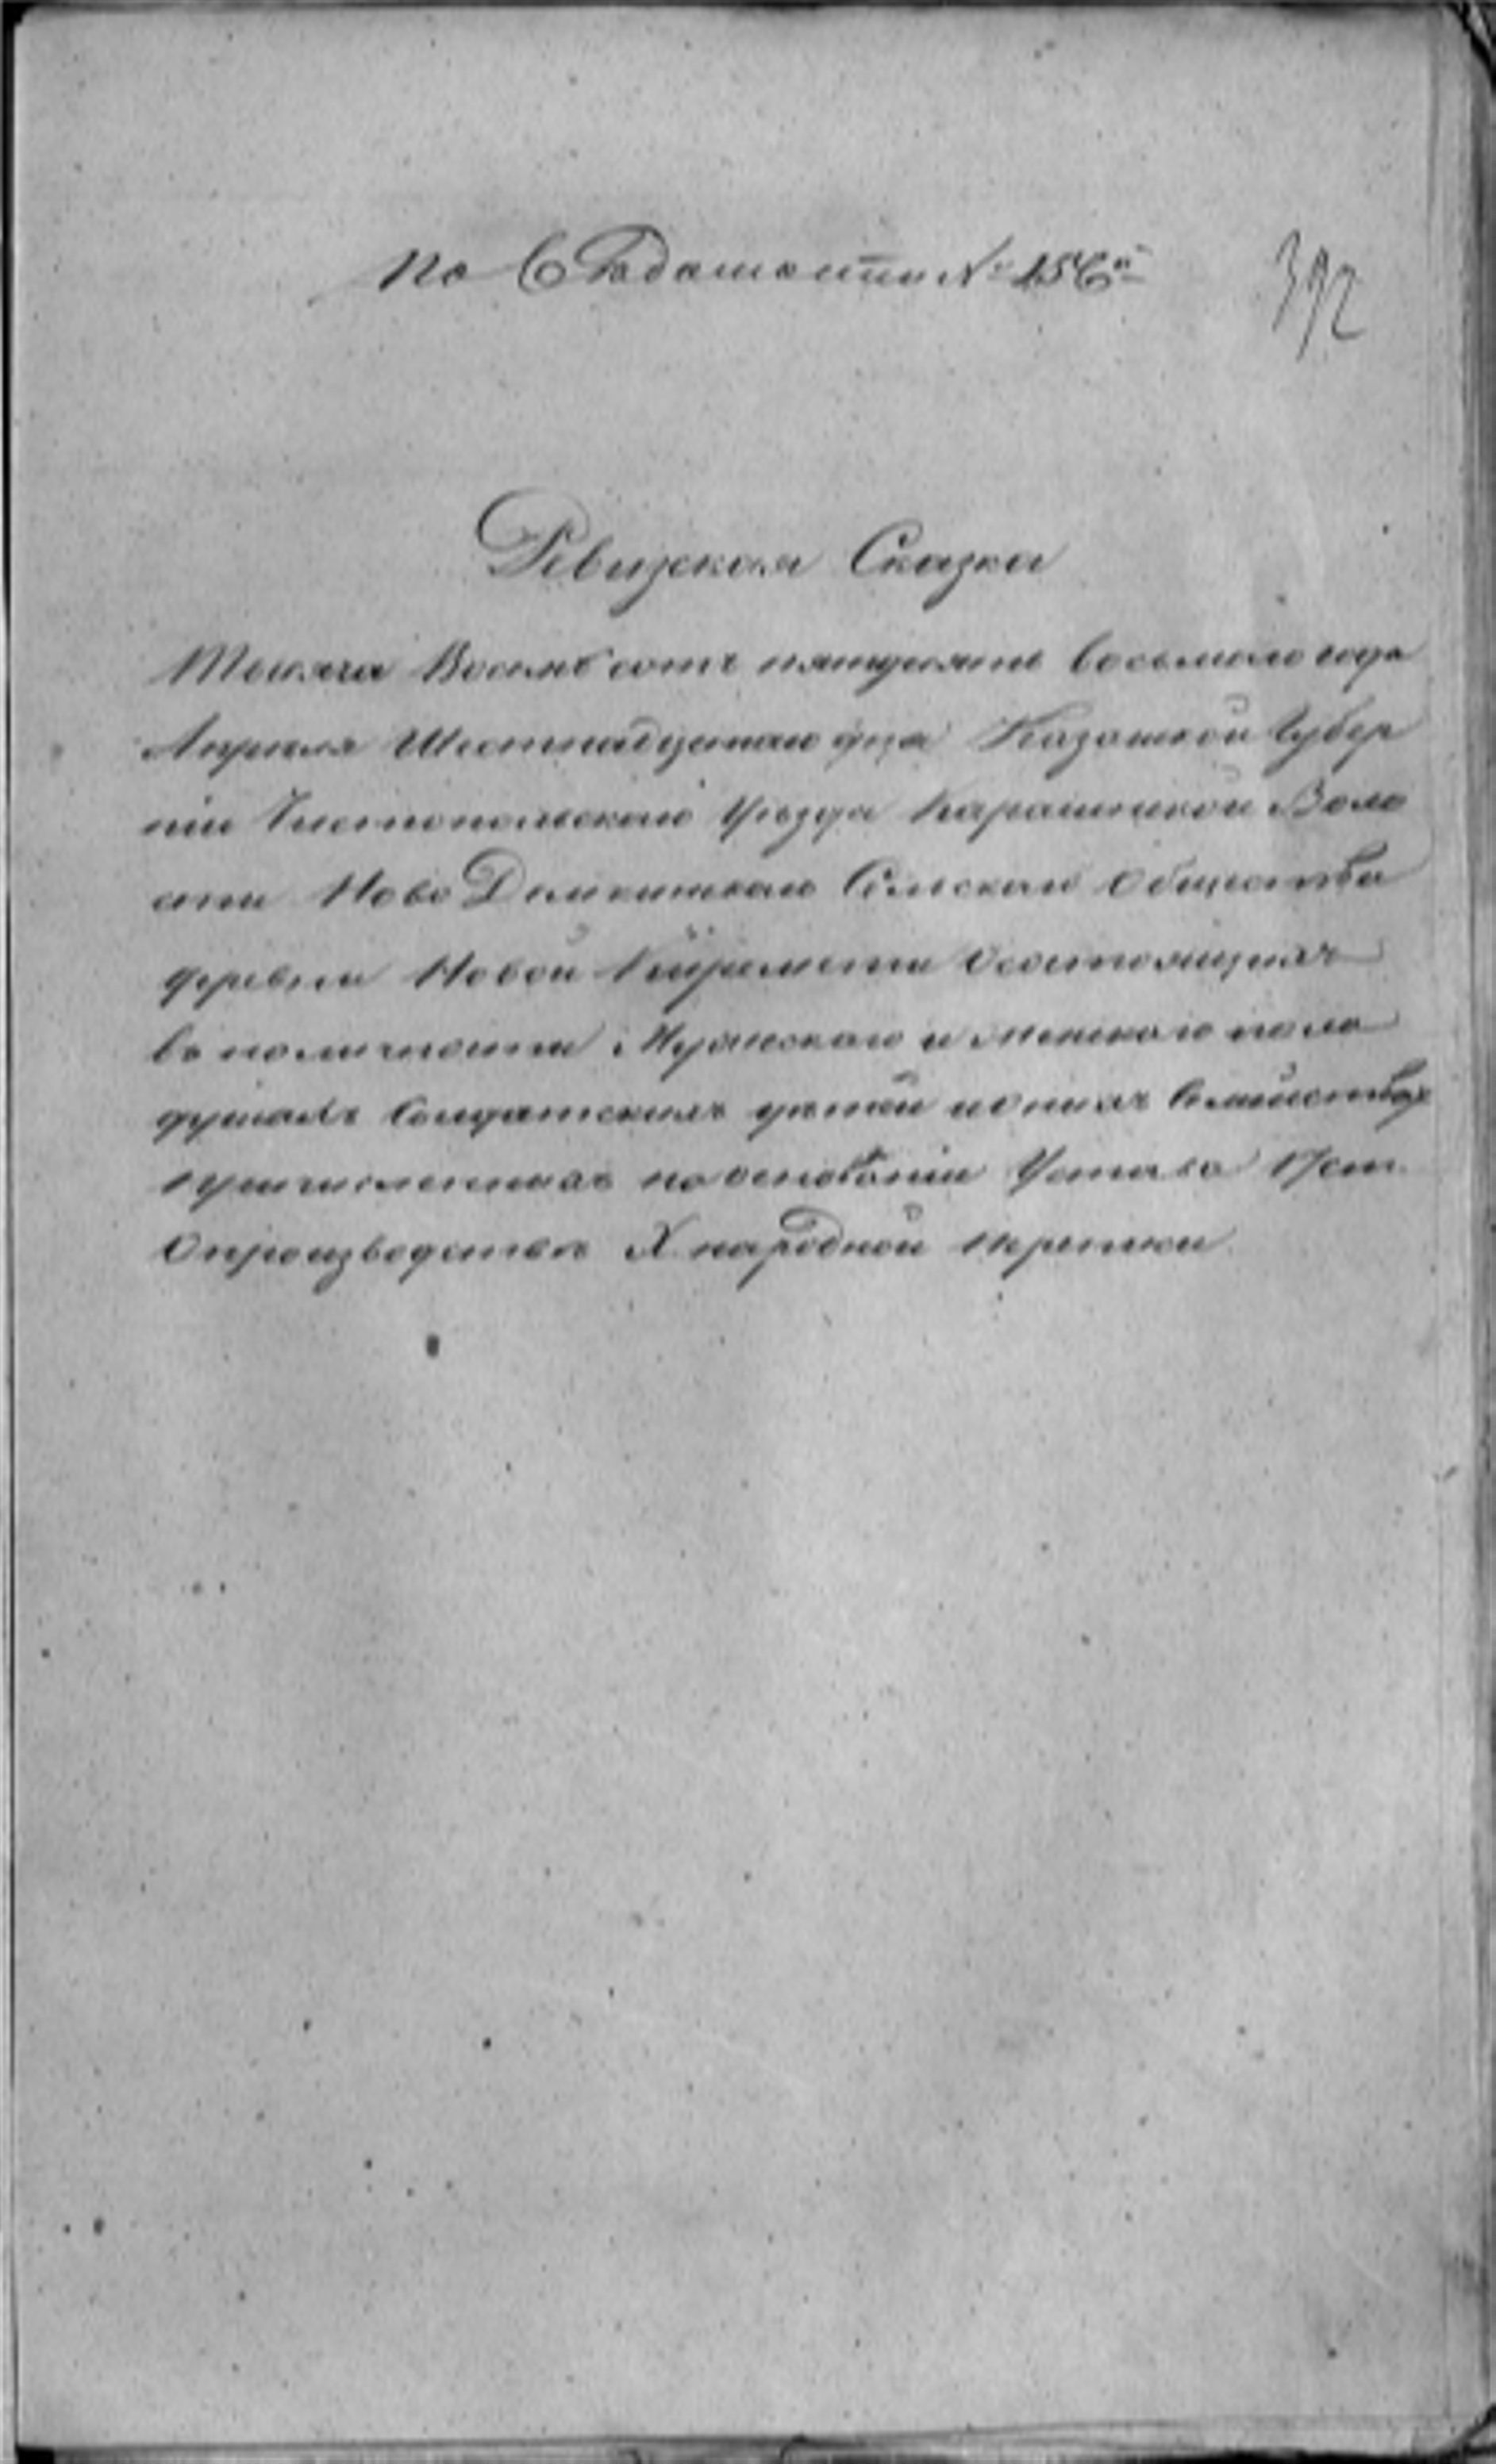 по С №156й
392
Ревизская Сказка
Тысяча Восемьсотъ пятьдесятъ восьмаго года
Апреля Шестнадцатаго дня Казанской Губер
ніи Чистопольскаго Уѣзда Воло
сти Ново Сельскаго Общества
деревни Новой Киреметъ О состоящихъ
въ наличности Мужескаго и женскаго пола
душахъ Солдатскихъ дѣтей и о ихъ Семействахъ
причисленныхъ на основаніи Устава 17 ст.
О производствѣ X народной переписи